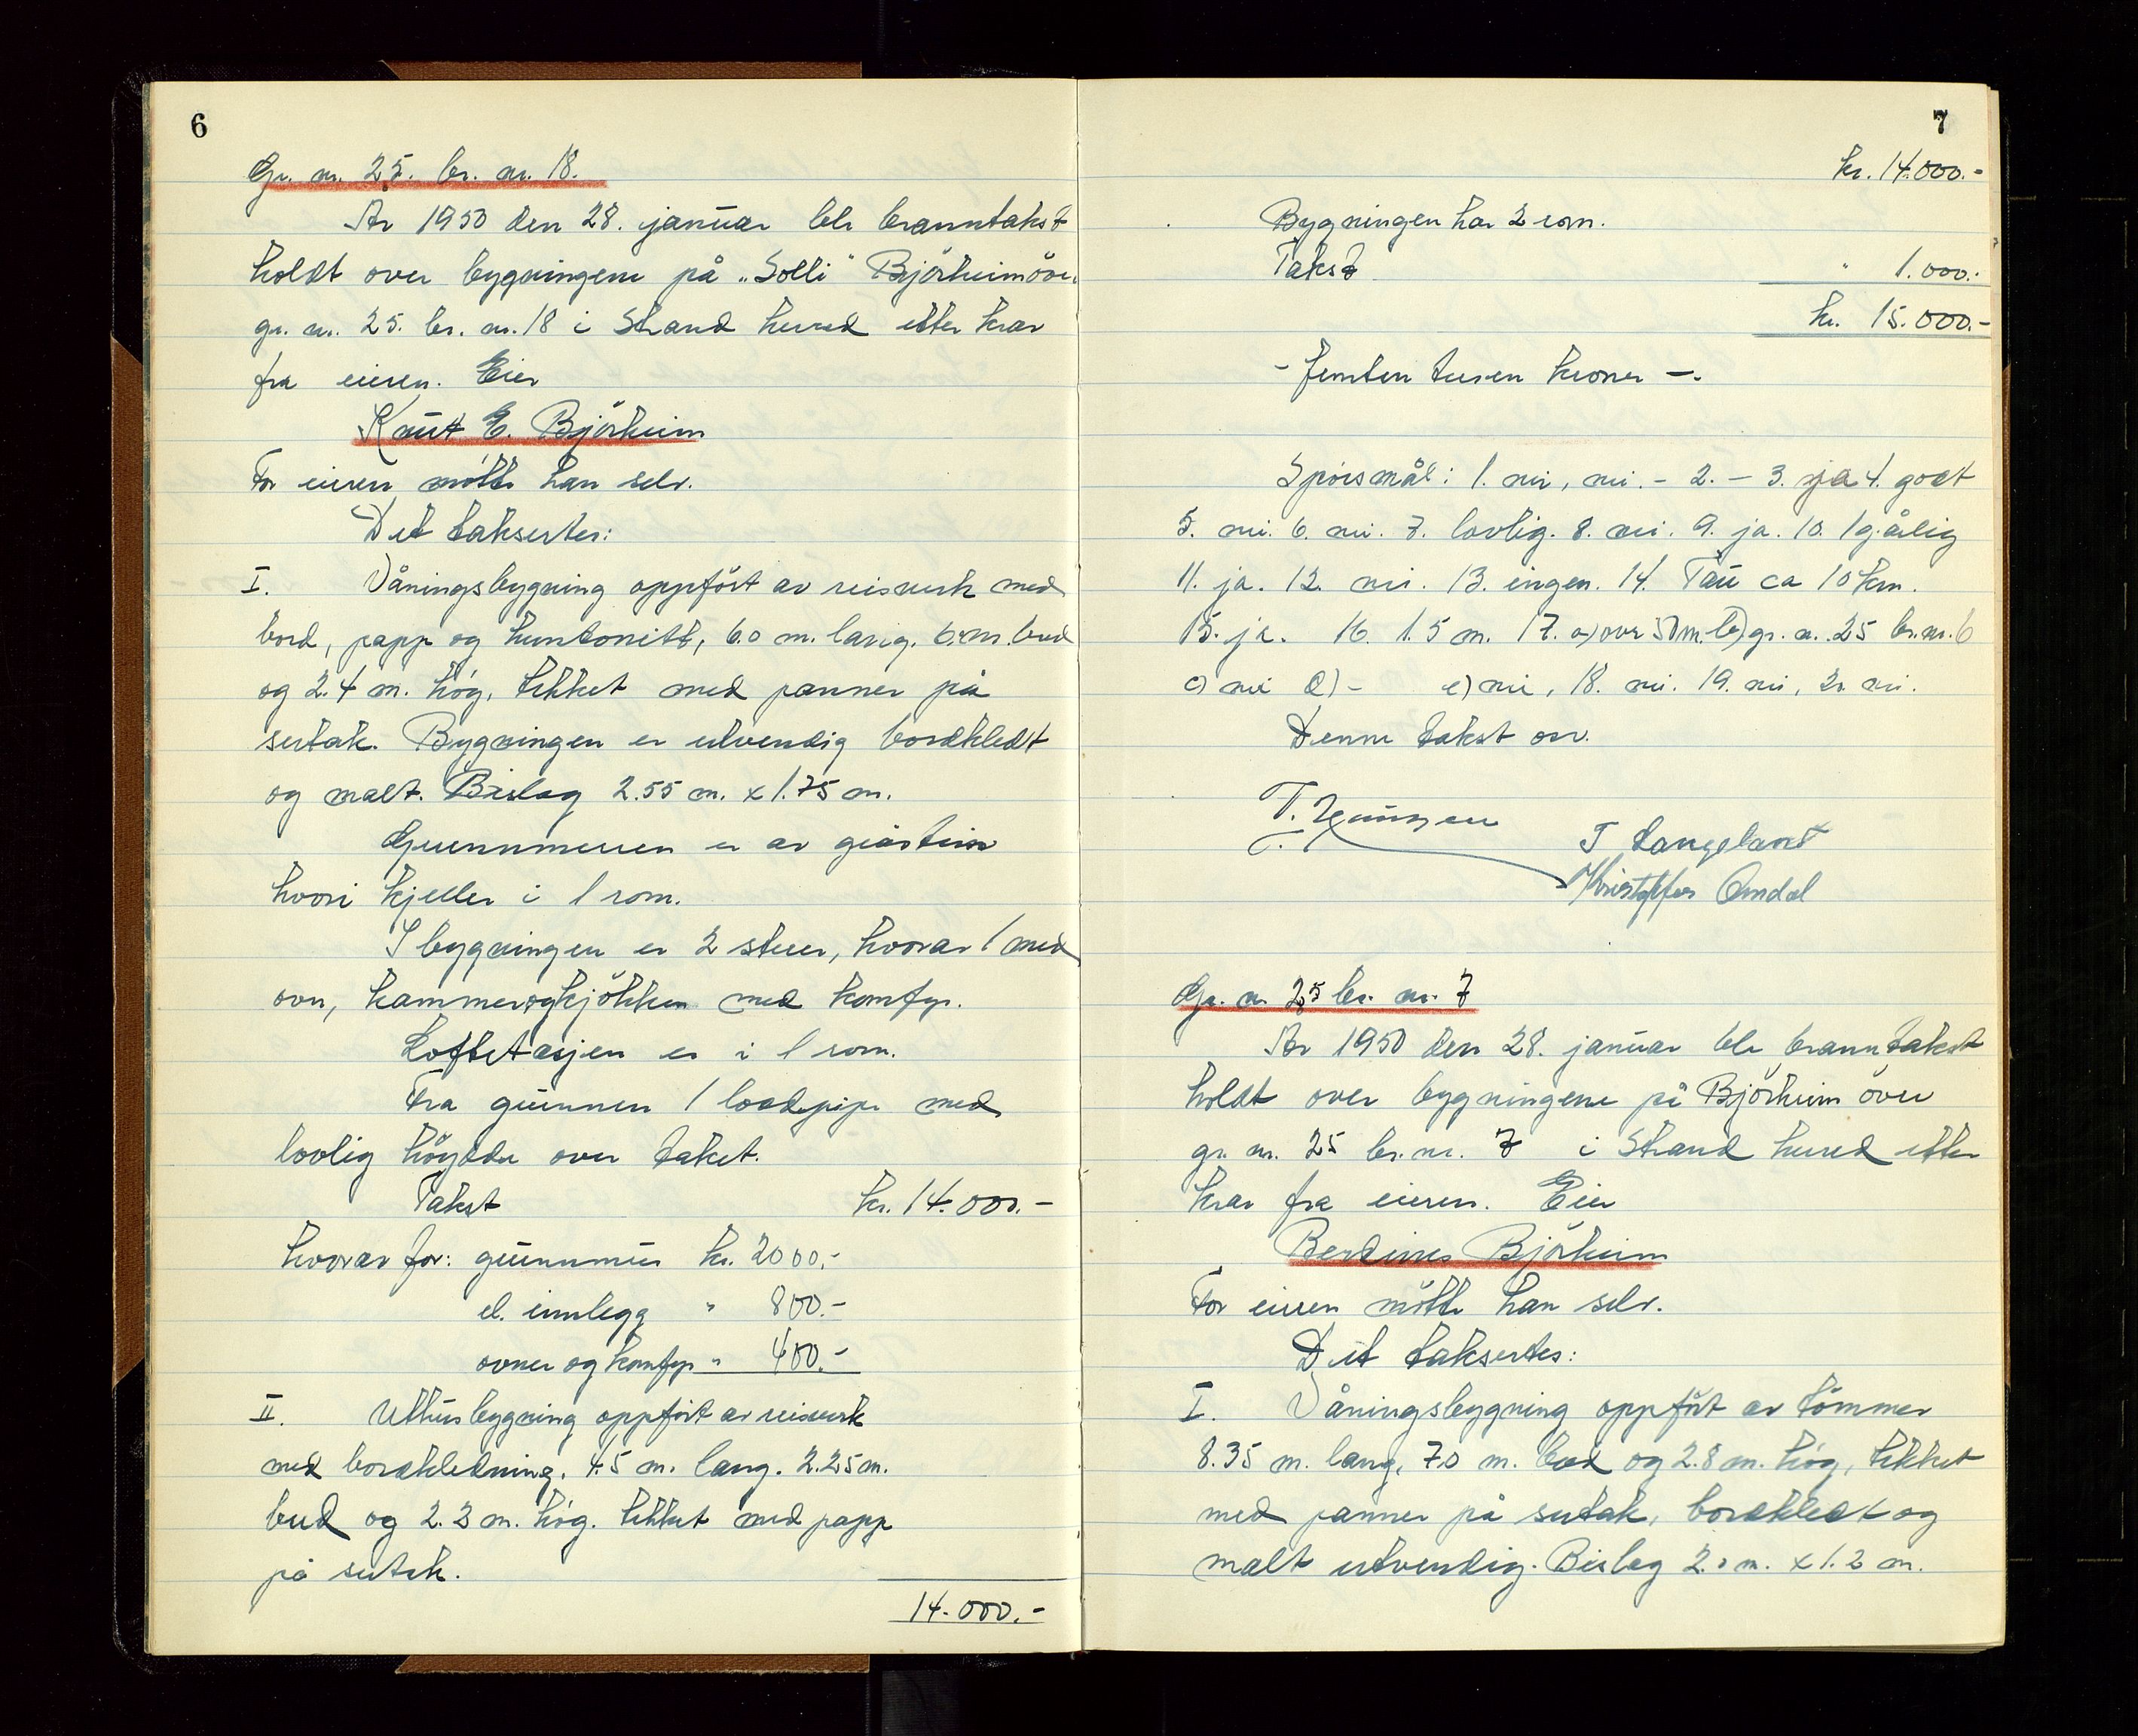 6
Gr. nr. 25. br. nr. 18.
År 1950 den 28. januar ble branntakst
holdt over bygningene på „Solli" Björheim övre
gr. nr. 25. br. nr. 18 i Strand herred etter krav
fra eieren. Eier
Knut E. Björheim
For eieren mötte han selv.
Det taksertes:
I. Våningsbygning oppfört av reisverk med
bord, papp og huntonitt, 6.0 m. lang. 6. m. bred
og 2.4 m. hög, tekket med panner på
sutak. Bygningen er utvendig bordkledt
og malt. Bislag 2.55 m. x 1.75 m.
Grunnmuren er av gråstein
hvori kjeller i 1 rom.
I bygningen er 2 stuer, hvorav 1 med
ovn, kammer og kjökken med komfyr.
Loftetasjen er i 1 rom.
Fra grunnen 1 loddpipe med
lovlig höyde over taket.
Takst kr. 14.000.-
hvorav for: grunnmur kr. 2000.-
el. innlegg " 800.-
ovner og komfyr " 400.-
II. Uthusbygning oppfört av reisverk
med bordkledning. 4.5 m. lang. 2.25 m.
bred og 2.2 m. hög. tekket med papp
på sutak.
14.000.-
7
kr. 14.000.-
Bygningen har 2 rom.
Takst " 1.000.-
kr. 15.000.-
- Femten tusen kroner -.
Spörsmål: 1. nei, nei. - 2. - 3. ja 4. godt
5. nei. 6. nei. 7. lovlig. 8. nei. 9. ja. 10. 1 g. årlig
11. ja. 12. nei. 13. ingen. 14. Tau ca 10 km.
15. ja. 16. 1.5 m. 17. a) over 50 m. b) gr. nr. 25 br. nr. 6
c) nei d) - e) nei, 18. nei. 19. nei, 20. nei.
Denne takst osv.
T. Langeland
Kristoffer Omdal
Gr. nr. 25 br. nr. 7
År 1950 den 28. januar ble branntakst
holdt over bygningene på Björheim övre
gr. nr. 25 br. nr. 7 i Strand herred etter
krav fra eieren. Eier
Berdines Björheim
For eieren mötte han selv.
Det taksertes:
I. Våningsbygning oppfört av tömmer
8.35 m. lang, 7.0 m. bred og 2.8 m. hög, tekket
med panner på sutak, bordkledt og
malt utvendig. Bislag 2.0 m. x 1.2 m.